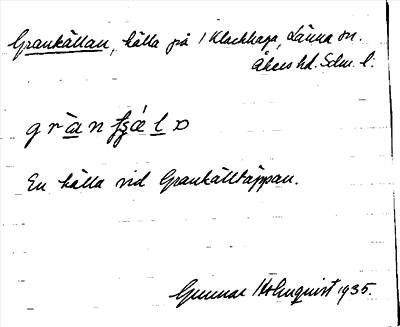 Grankällan, källa på 1 Klackhaga, Länna sn.
Åkers hd. Södm. l.
En källa vid Grankälltäppan.
Gunnar Holmquist 1935.